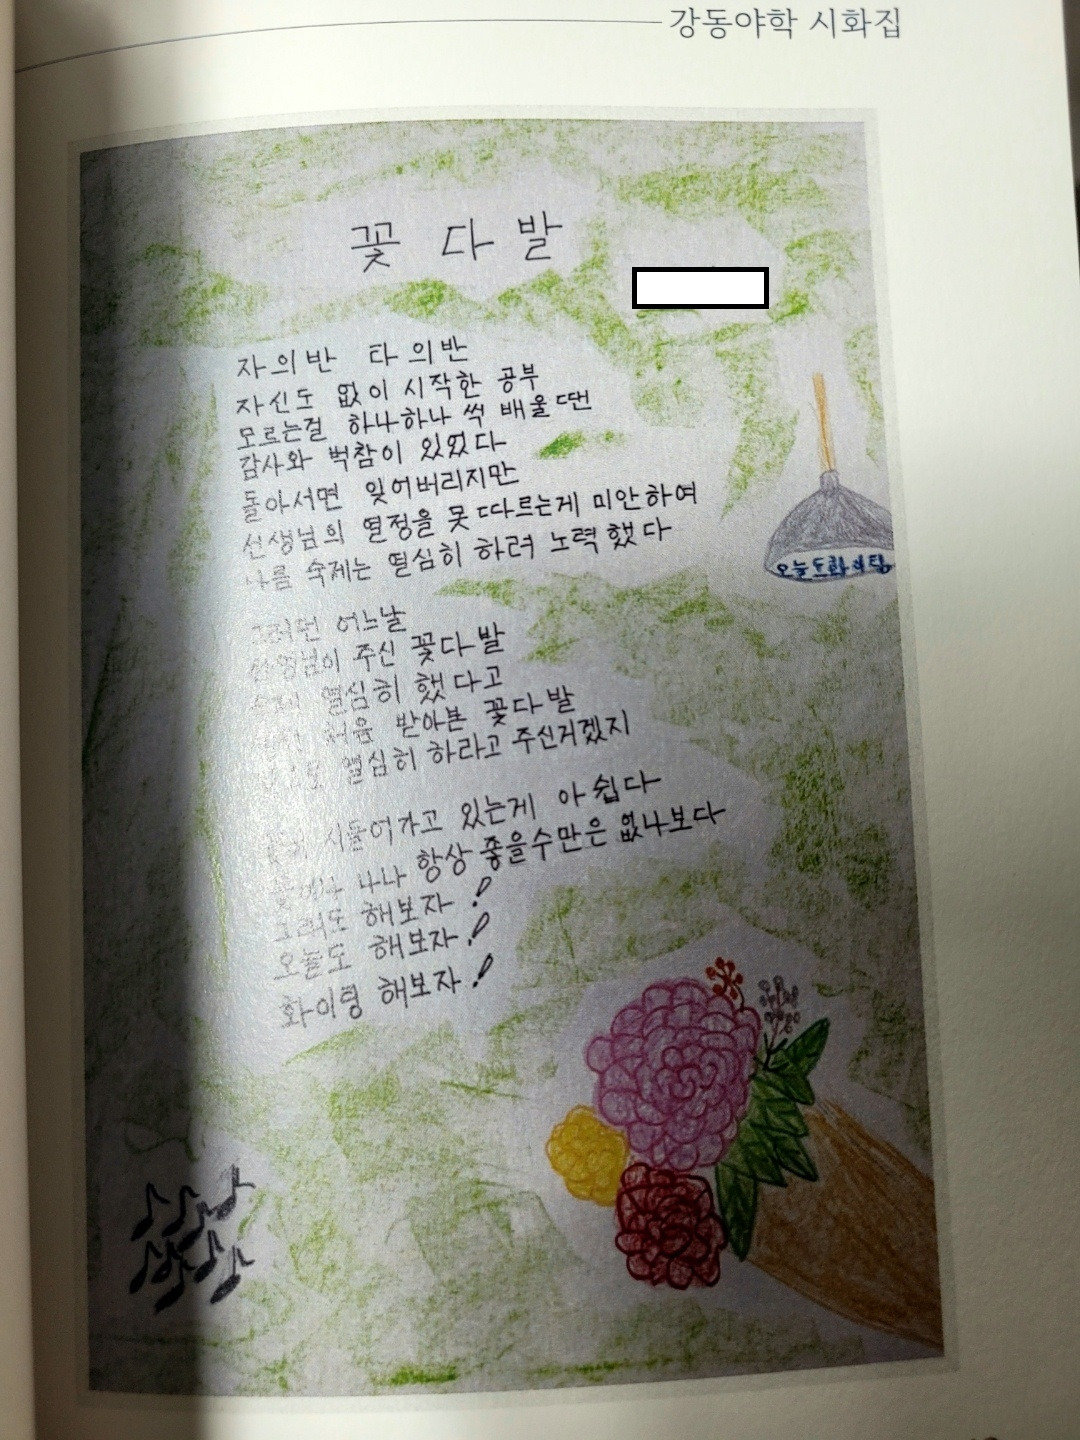 강동야학 시화집
꽃다발
자의반 타의반
자신도 없이 시작한 공부
모르는걸 하나하나 씩 배울땐
감사와 벅참이 있었다
돌아서면 잊어버리지만
선생님의 열정을 못 따르는게 미안하여
나름 숙제는 열심히 하려 노력했다
그러던 어느날
선생님이 주신 꽃다발
열심히 했다고
처음 받아본 꽃다발
열심히 하라고 주신거겠지
시들어가고 있는게 아쉽다
나나 항상 좋을수만은 없나보다
그래도 해보자!
오늘도 해보자!
화이팅 해보자!
오늘도화이팅